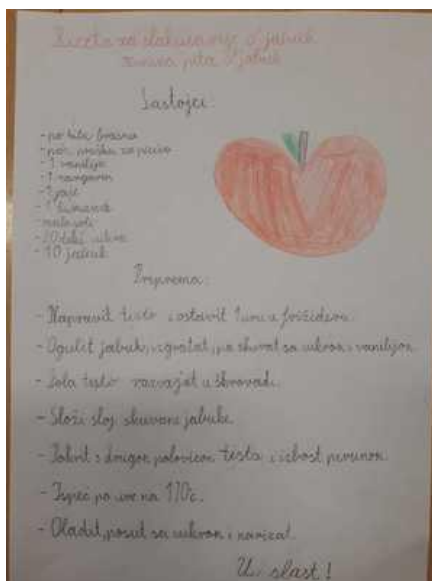 jabuk
pita jabuk
Sastojci:
- po kile brašna
- po praška za pecivo
- 1 vanilija
- 1 margarin
- 1 jaje
- 1 limunov
- malo soli
- 20 deki cukra
- 10 jabuk
Priprema:
- Napravit testo i ostavit 1 uru u frižideru.
- Ogulit jabuk, zgratat, pa skuvat sa cukron i vanilijon.
- Pola testo razvajat u škrovadi.
- Složi sloj skuvani jabuk.
- Pokrit s drugon polovicon testa i izbost perunon.
- Ispeć po ure na 170°c.
- Oladit, posut sa cukron i narizat.
U slast!